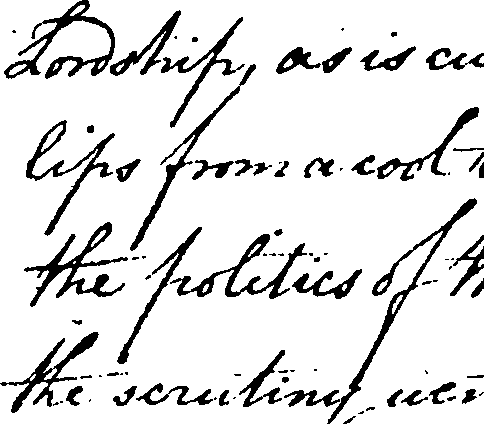 Lordship, as is cu
lips from a cool
the politics of th
the scrutiny wer